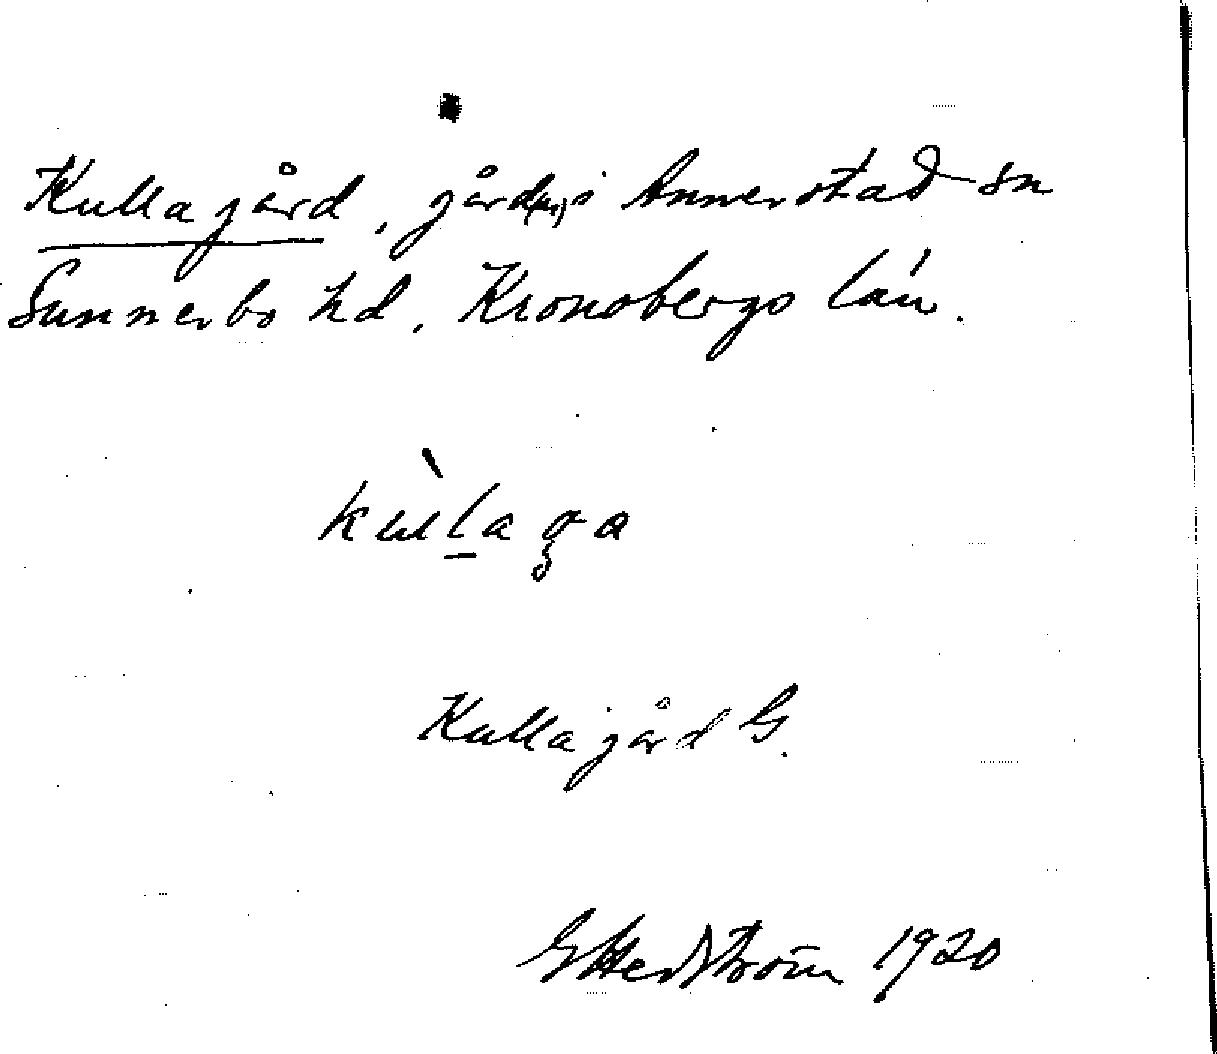 Kullagård, gård(ar) i Annerstad sn
Sunnerbo hd, Kronobergs län.
kùlaga
Kullagård G.
G Hedström 1920